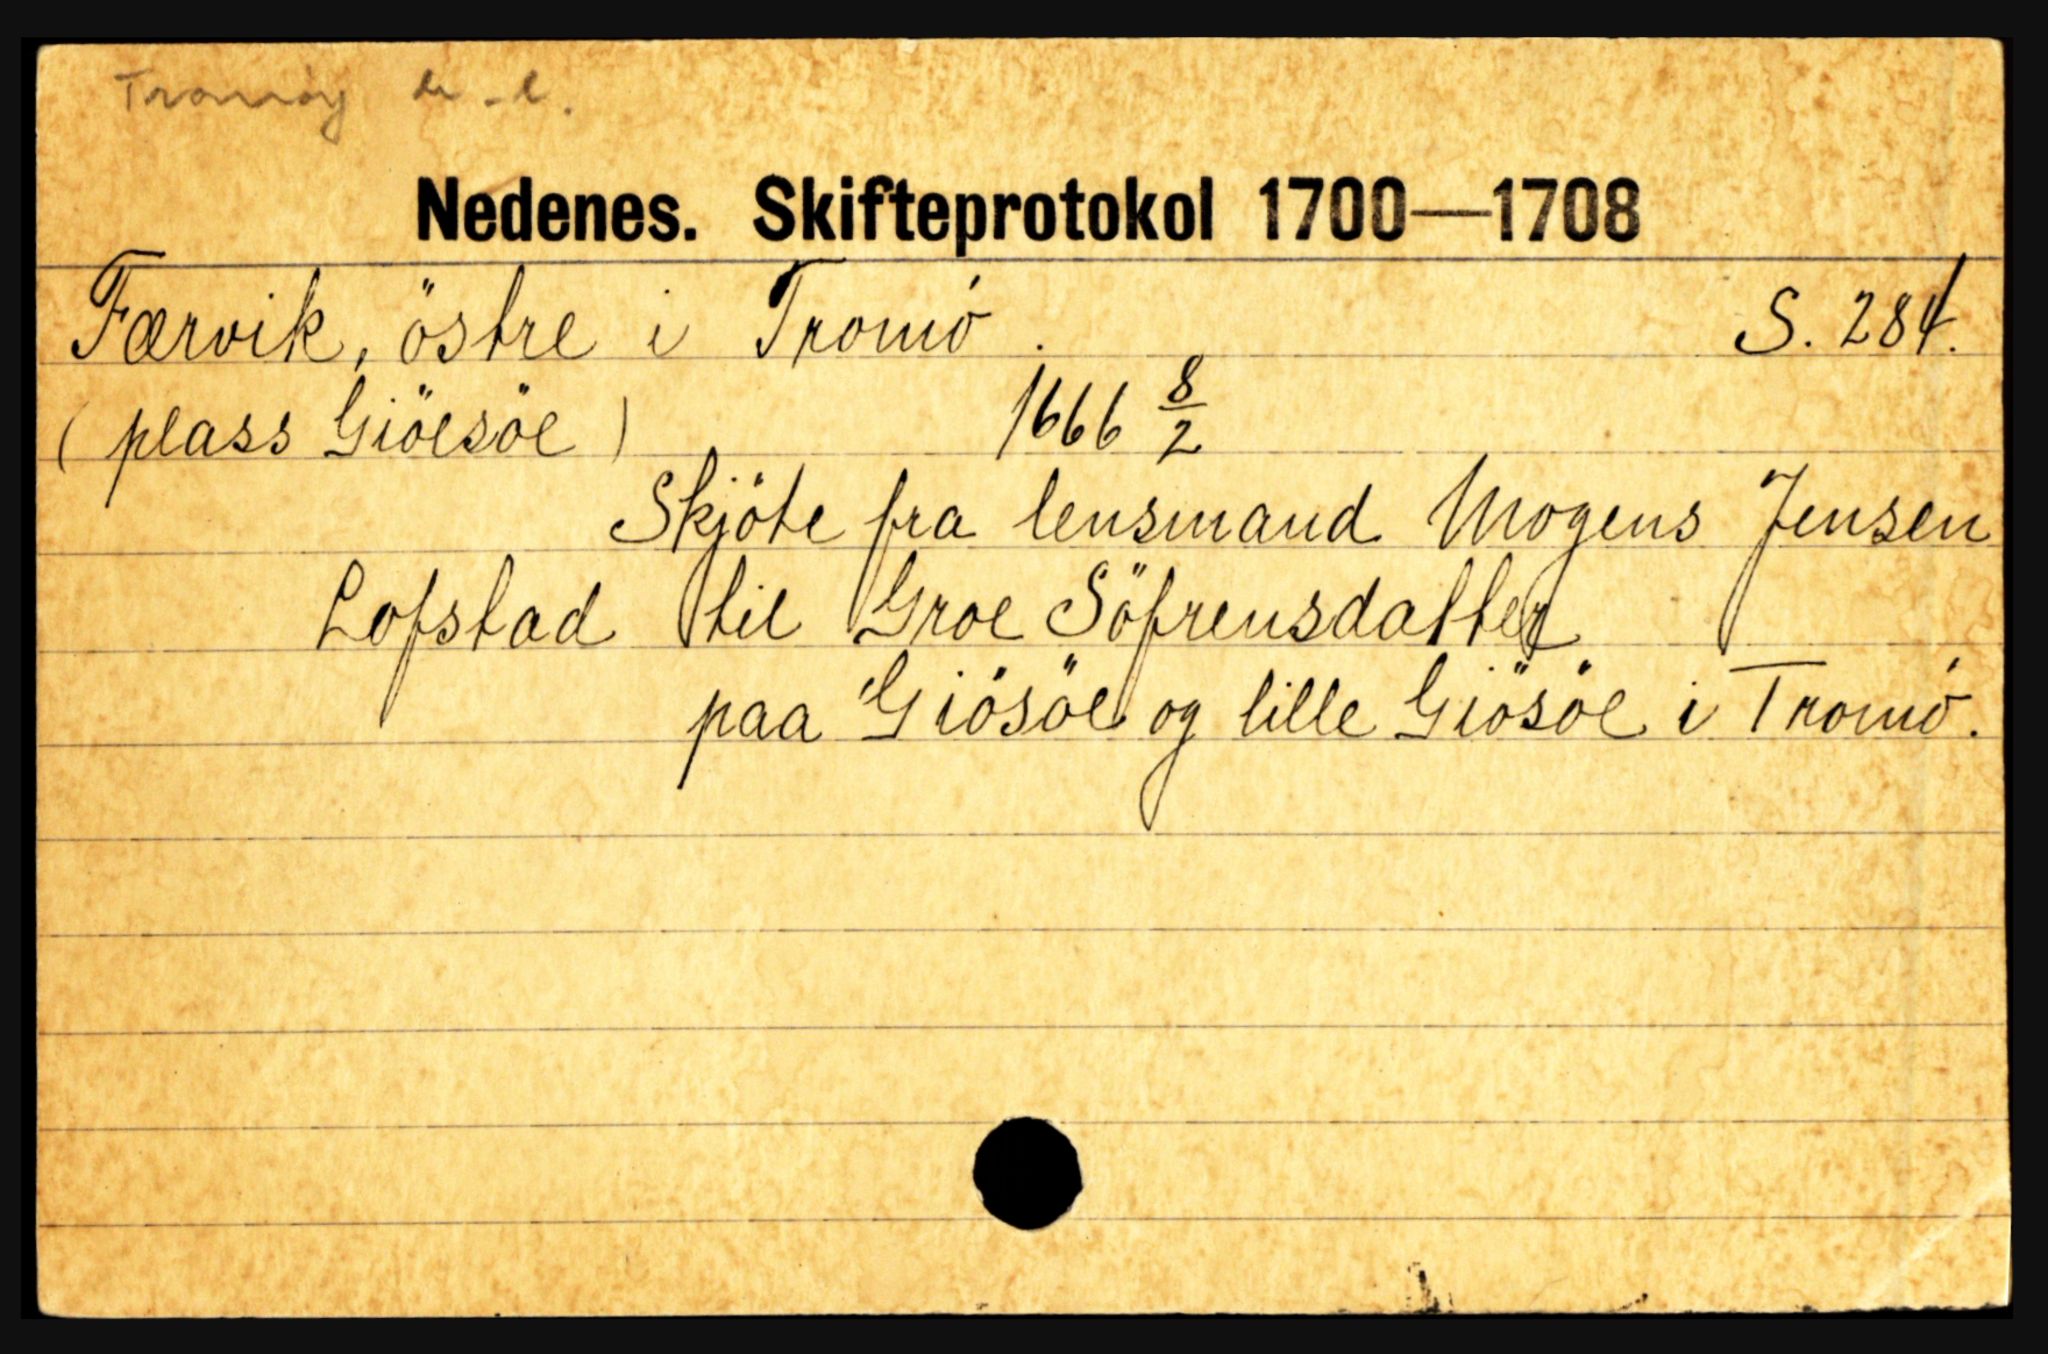 Tromøy
Nedenes. Skifteprotokol 1700—1708
Færvik, östre i Tromö. S. 284.
(plass Giöesöe) 1666 8/2
Skjöte fra lensmand Mogens Jensen
Lofstad til Groe Söfrensdatter
paa Giösöe og lille Giösöe i Tromö.